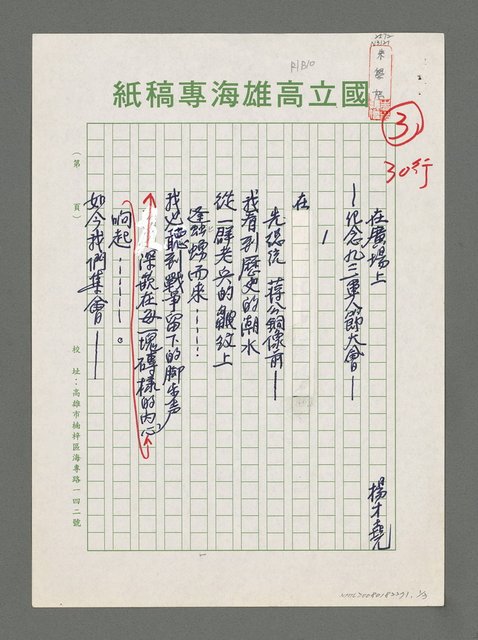 國立高雄海專稿紙
R1B10
3
30行
在廣場上
—紀念九三軍人節大會—
楊才堯
1
在
先總統 蔣公銅像前—
我看到歷史的潮水
從一群老兵的皺紋上
逶蜒而來……
我也聽到戰爭留下的脚步声
深嵌在每一塊磚樣的內心
响起……。
如今我們集會—
(第 頁)
校 址:高雄市楠梓區海專路一四二號
NMTL20080182271, 1/3